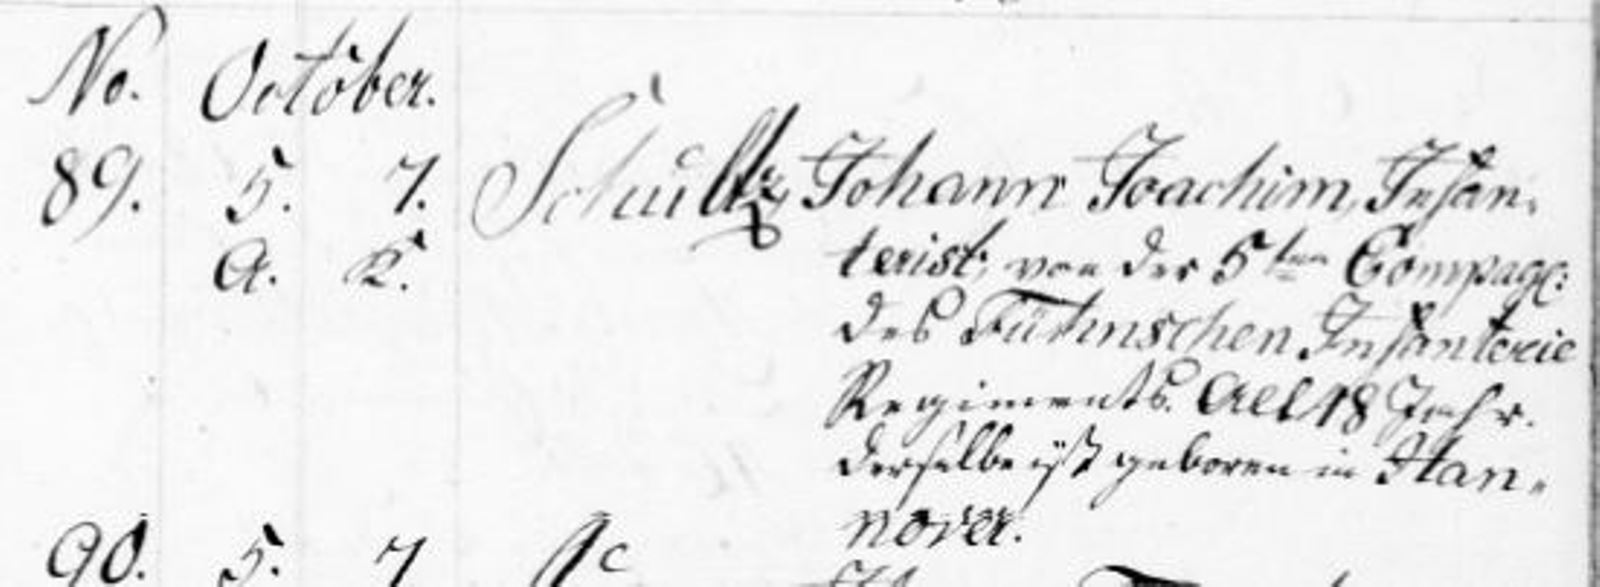 No. October.
89. 5. 7. Schultz Johann Joachim, Infan-
a. K. terist, von der 5ten Compagc:
des Infanterie
Regiments. Ael 18 Jahr.
derselbe ist geboren in Han-
nover.
90. 5. 7